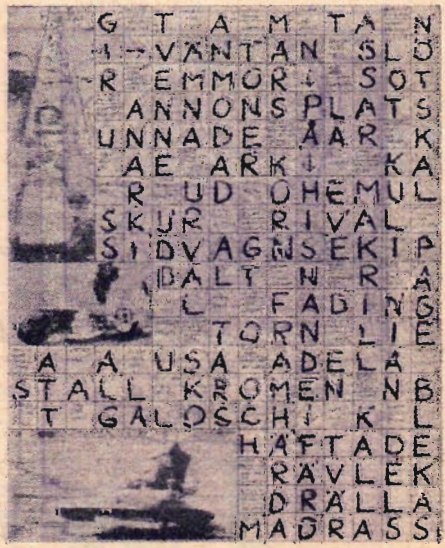 G T A M T A N
I VÄNTAN SLÖ
R EMMOR I SOT
ANNONSPLATS
UNNADE ÅAR K
AE ARK I KA
R UD OHEMUL
SKUR RIVAL
SIDVAGNSEKIP
BALT N R A
L FADING
TORN LIE
A A USA ADELA
STALL KROMEN NB
T GALOSCH I K L
HÄFTADE
RÄVLEK
DRÄLLA
MADRASS